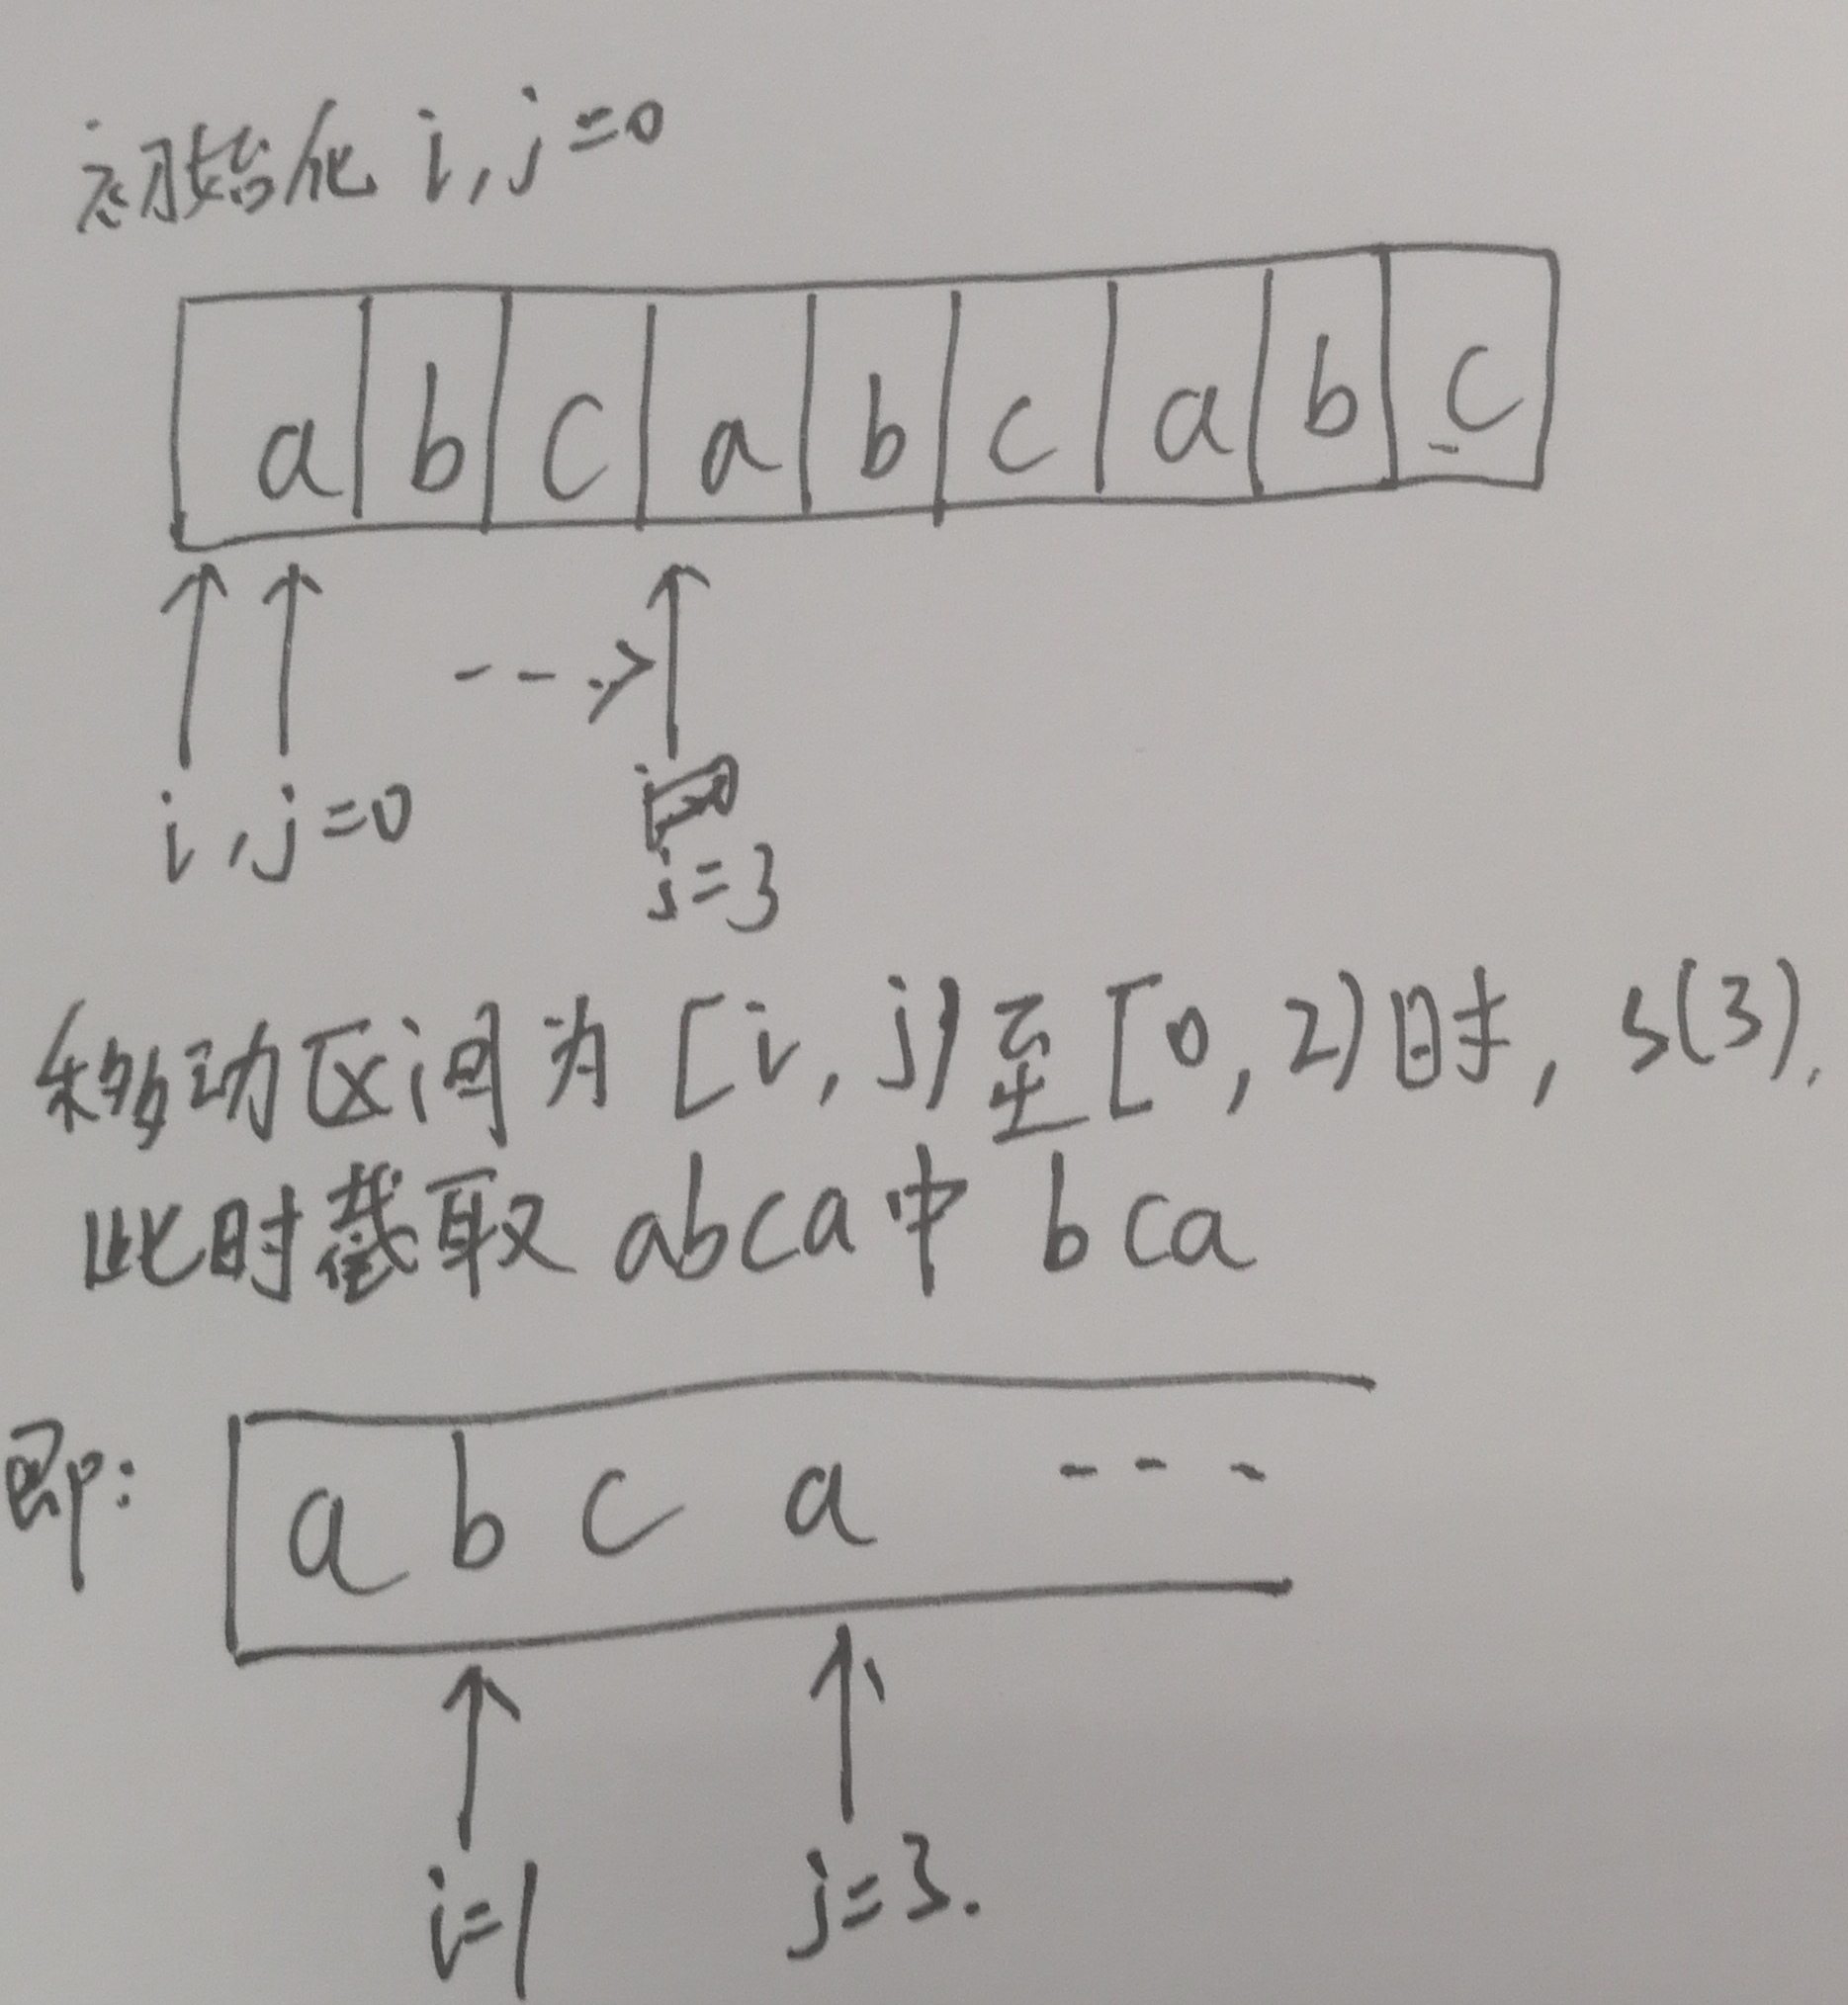 初始化 i,j=0
a b c a b c a b c
i,j=0
j=3
移动区间为[i,j)至[0,2)时, s(3),
此时截取 abca中 bca
即: a b c a ---
i=1 j=3.